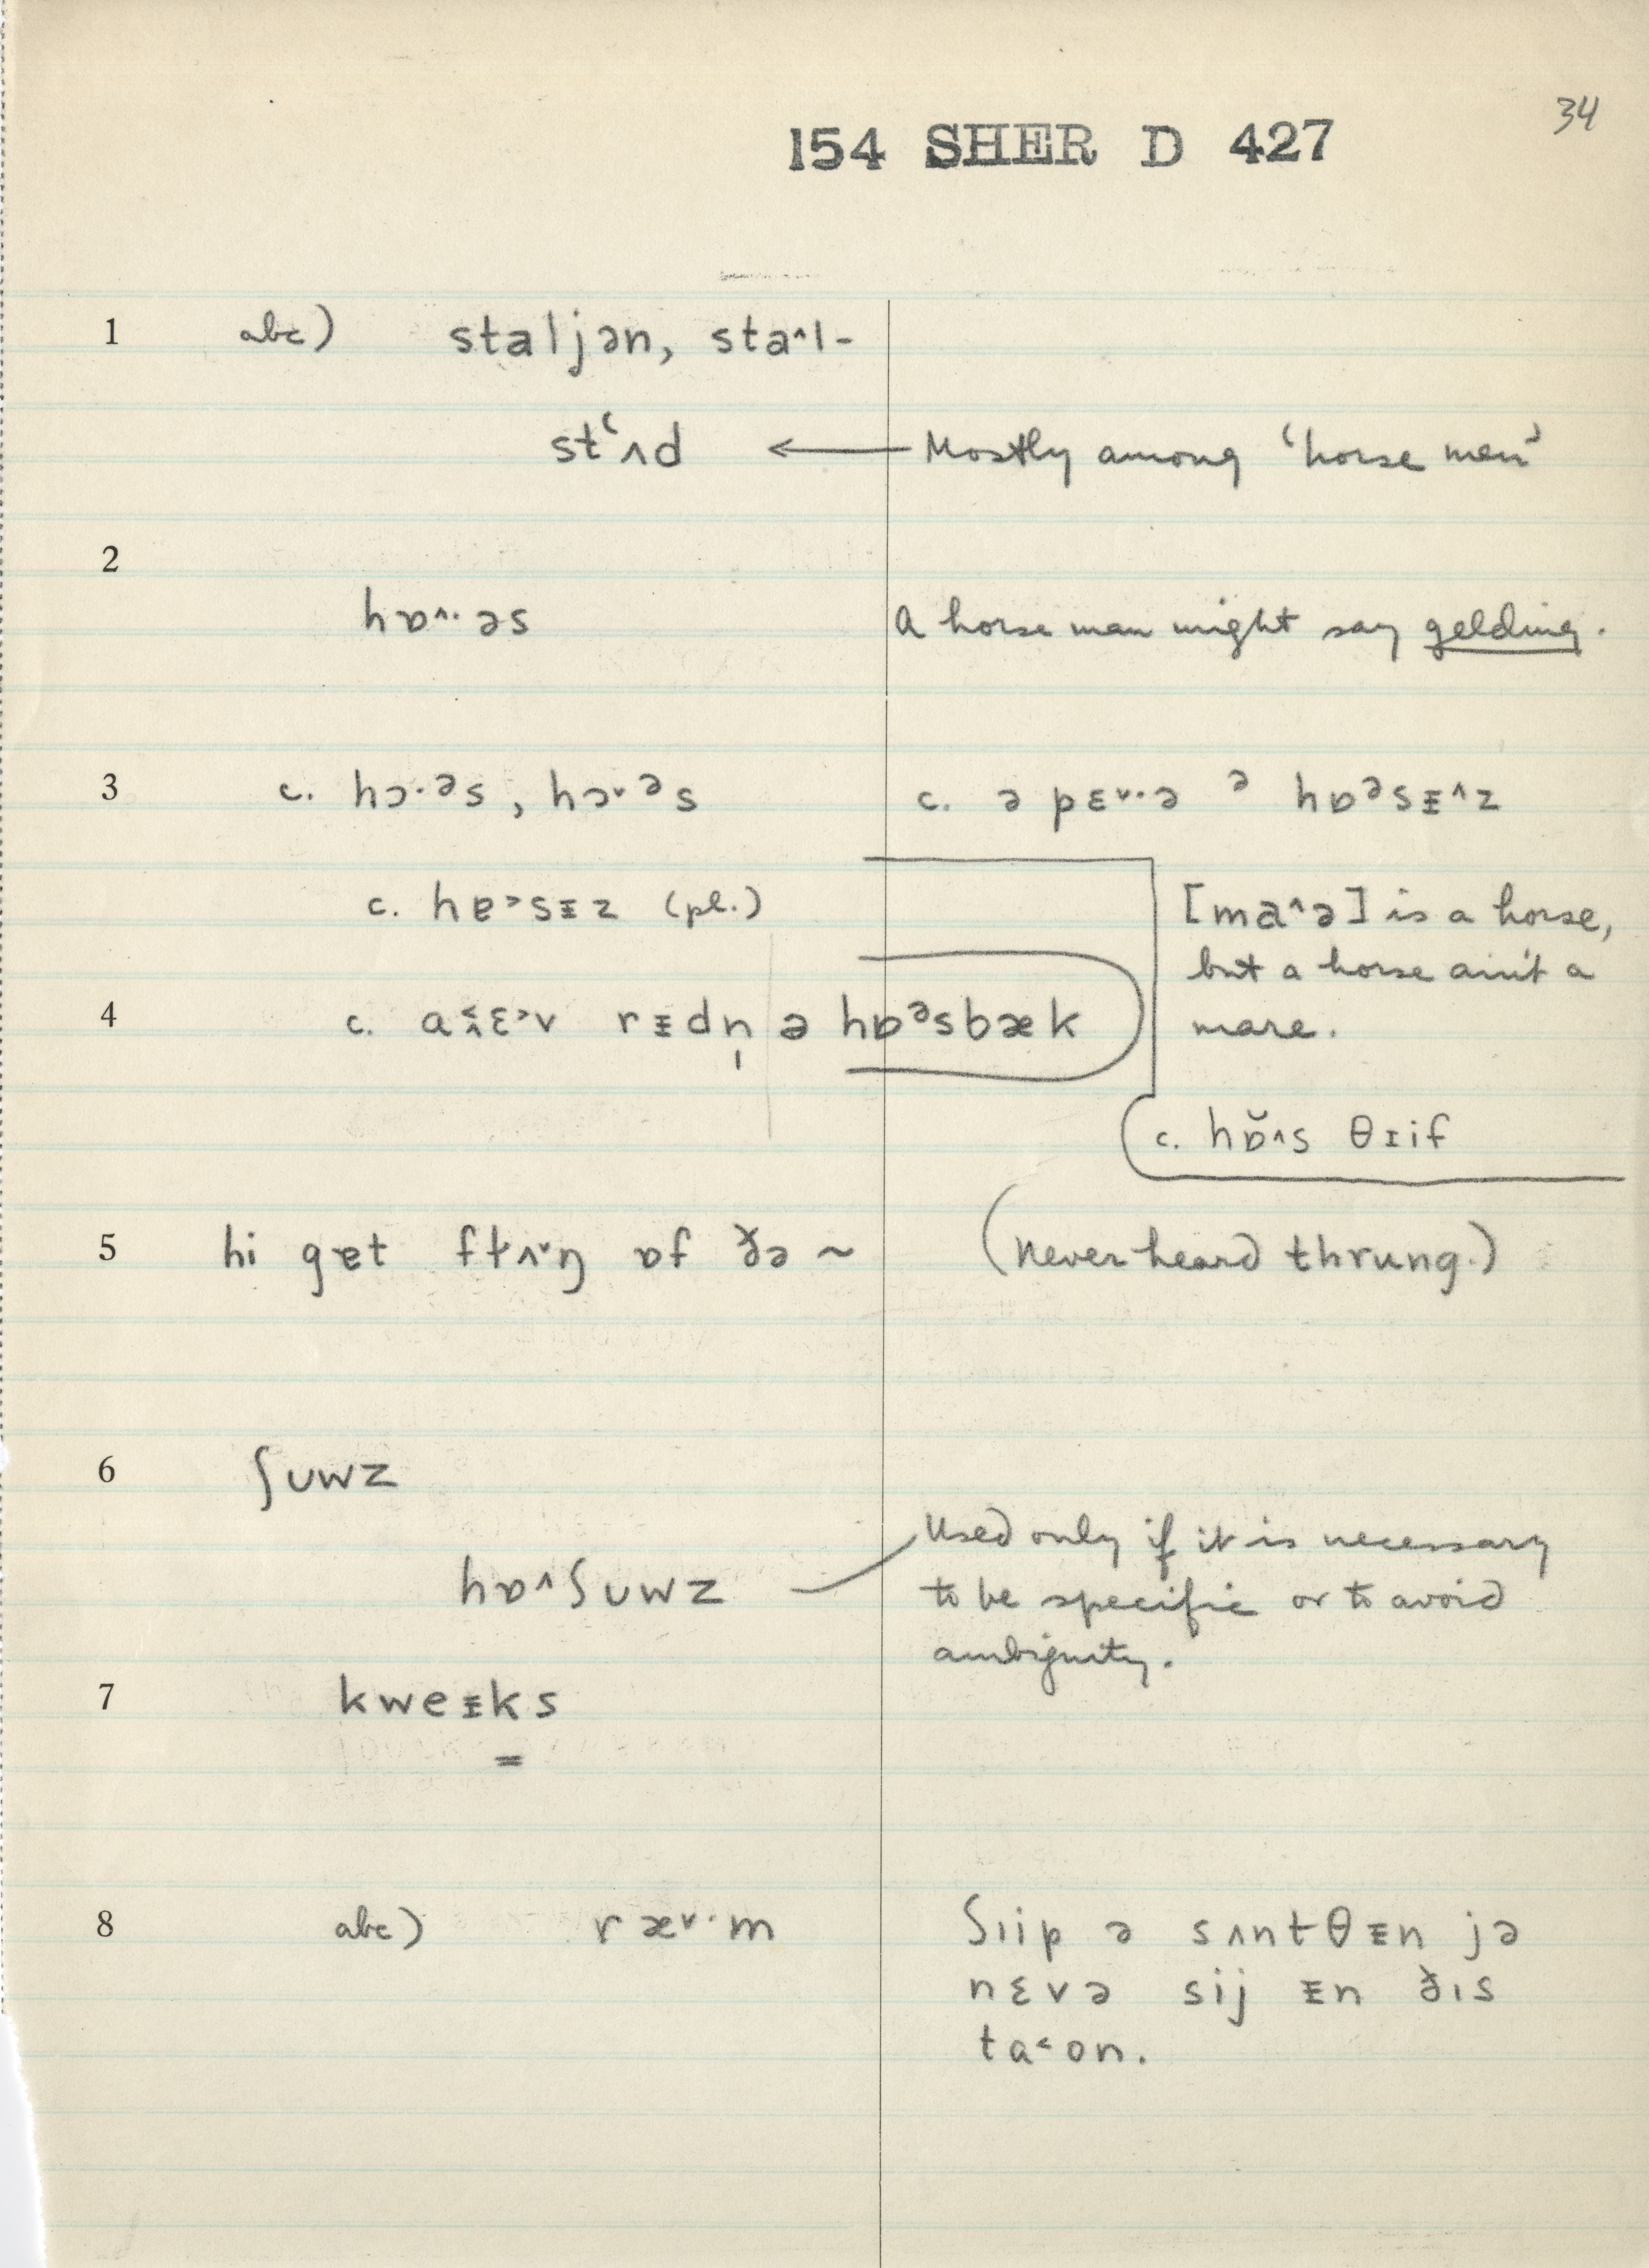 34
154 SHER D 427
1 abc) staljən, sta^l-
stʻʌd ← Mostly among ‘horse men’
2
hɒ^·əs A horse man might say gelding.
3 c. hɔ·ᵊs, hɔ˅ᵊs c. ə pɛ˅·ə ᵊ hɒᵊsɪ^z
c. hɐ˃sɪz (pl.) [ma^ə] is a horse,
but a horse ain't a
4 c. rɪdn̩ ə hɒᵊsbæk mare.
c. hɒ̆^s θɪif
5 hi gɐt ɒf ðə ~ (Never heard thrung.)
6 ʃuwz
Used only if it is necessary
hɒ^ʃuwz to be specific or to avoid
ambiguity.
7 kweɪks
=
8 abc) ræ˅·m ʃıip ə sʌntθɪn jə
nɛvə sij ɪn ðɪs
ta˂on.